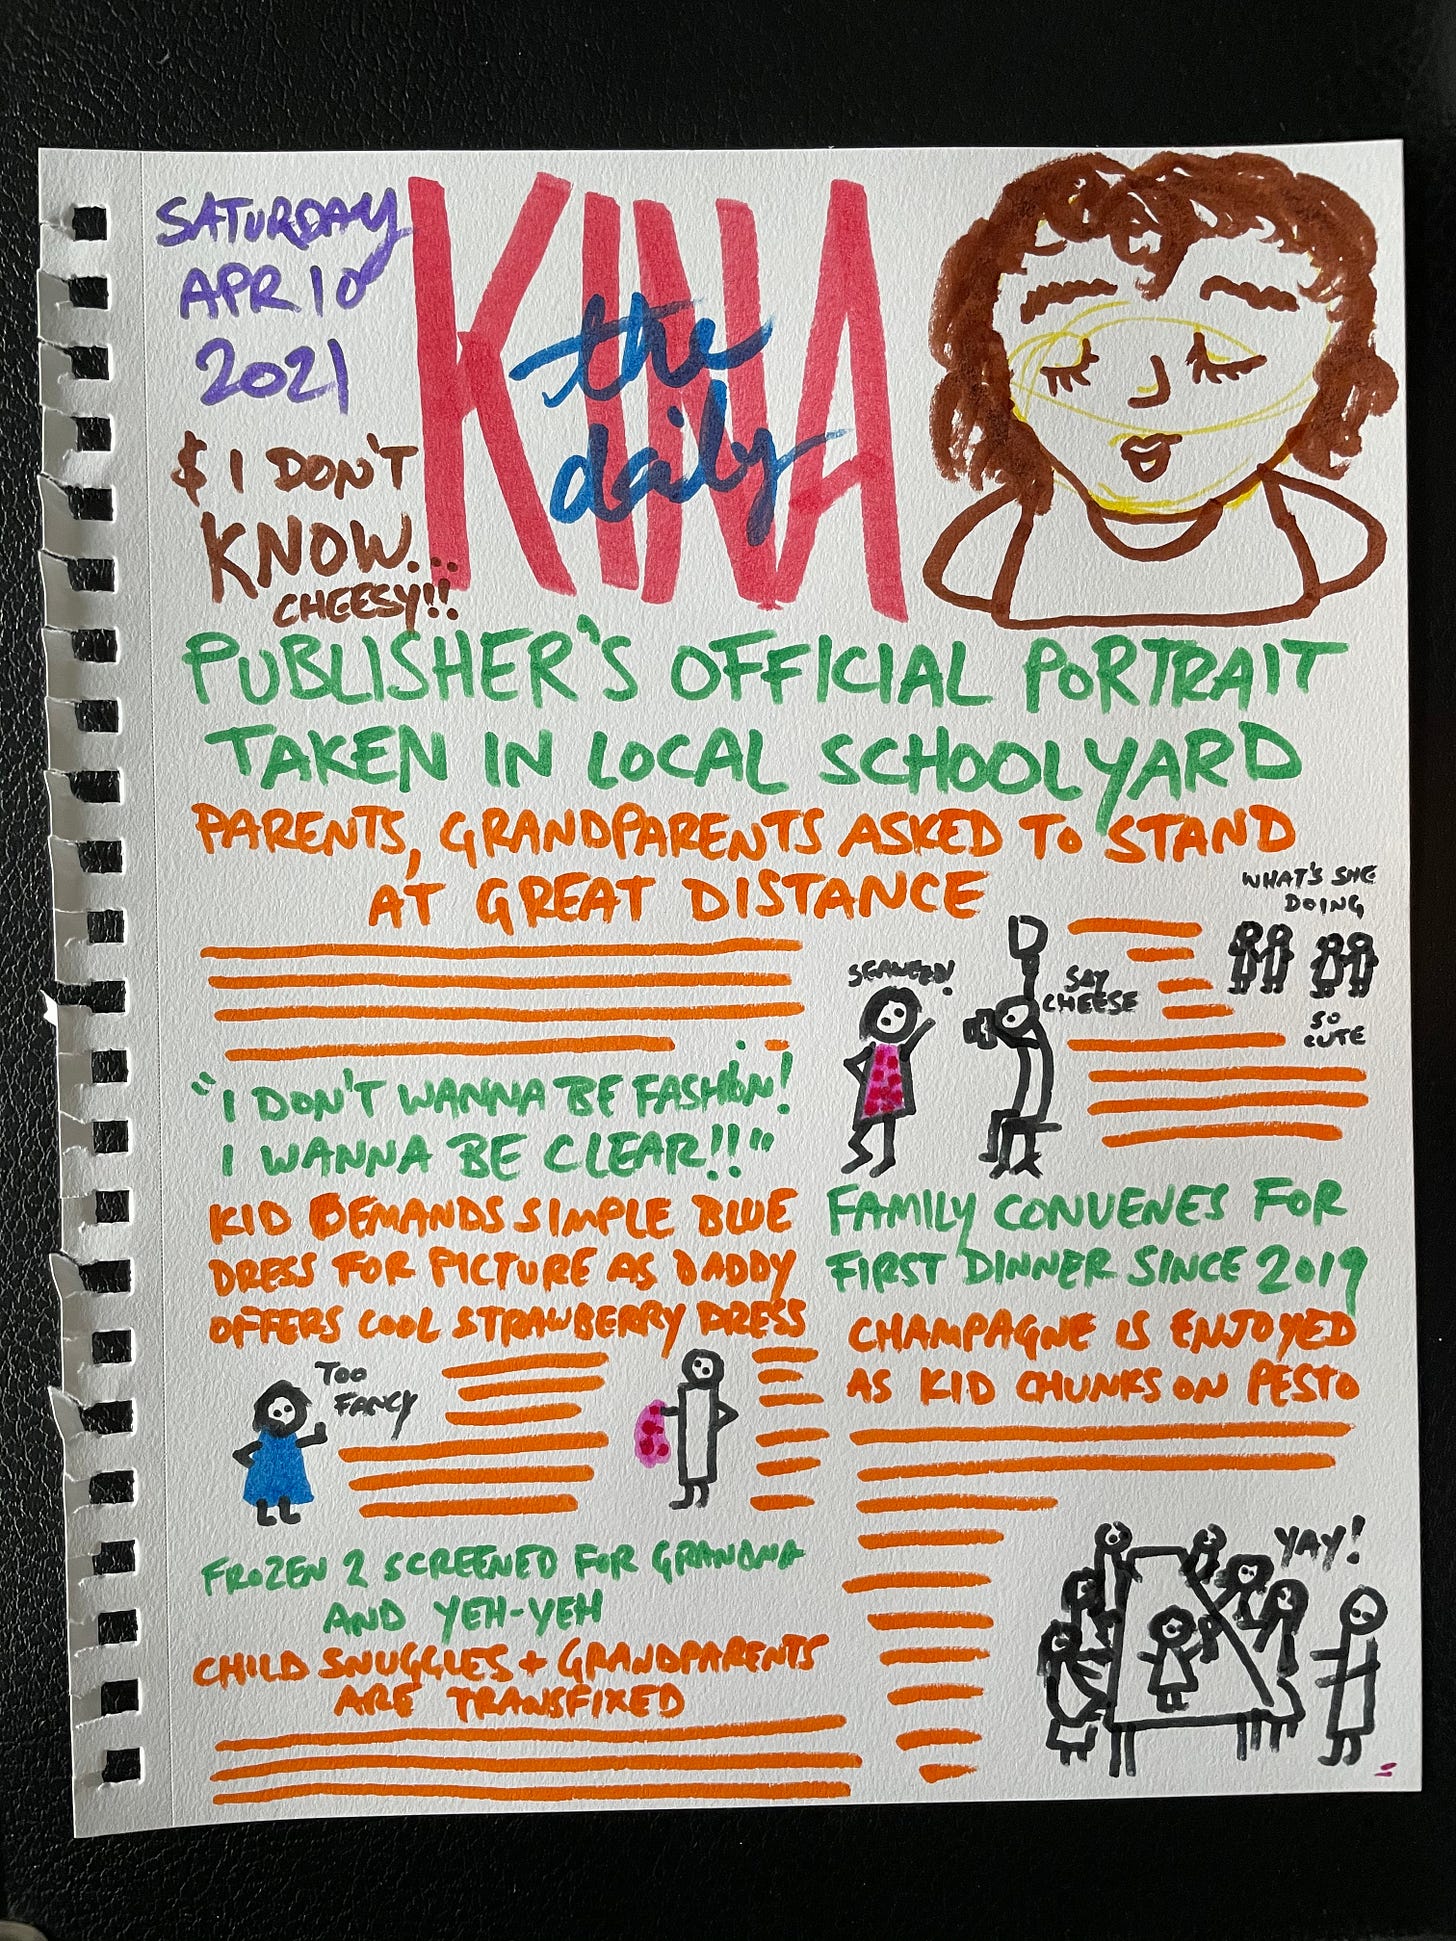 SATURDAY
APR 10
2021
$ I DON'T
KNOW...
CHEESY!!
KINA
the
daily
PUBLISHER'S OFFICIAL PORTRAIT
TAKEN IN LOCAL SCHOOLYARD
PARENTS, GRANDPARENTS ASKED TO STAND
AT GREAT DISTANCE
SEAWEED!
SAY
CHEESE
WHAT'S SHE
DOING
SO
CUTE
"I DON'T WANNA BE FASHION!
I WANNA BE CLEAR!!"
KID DEMANDS SIMPLE BLUE
DRESS FOR PICTURE AS DADDY
OFFERS COOL STRAWBERRY DRESS
TOO
FANCY
FROZEN 2 SCREENED FOR GRANDMA
AND YEH-YEH
CHILD SNUGGLES + GRANDPARENTS
ARE TRANSFIXED
FAMILY CONVENES FOR
FIRST DINNER SINCE 2019
CHAMPAGNE IS ENJOYED
AS KID CHUNKS ON PESTO
YAY!